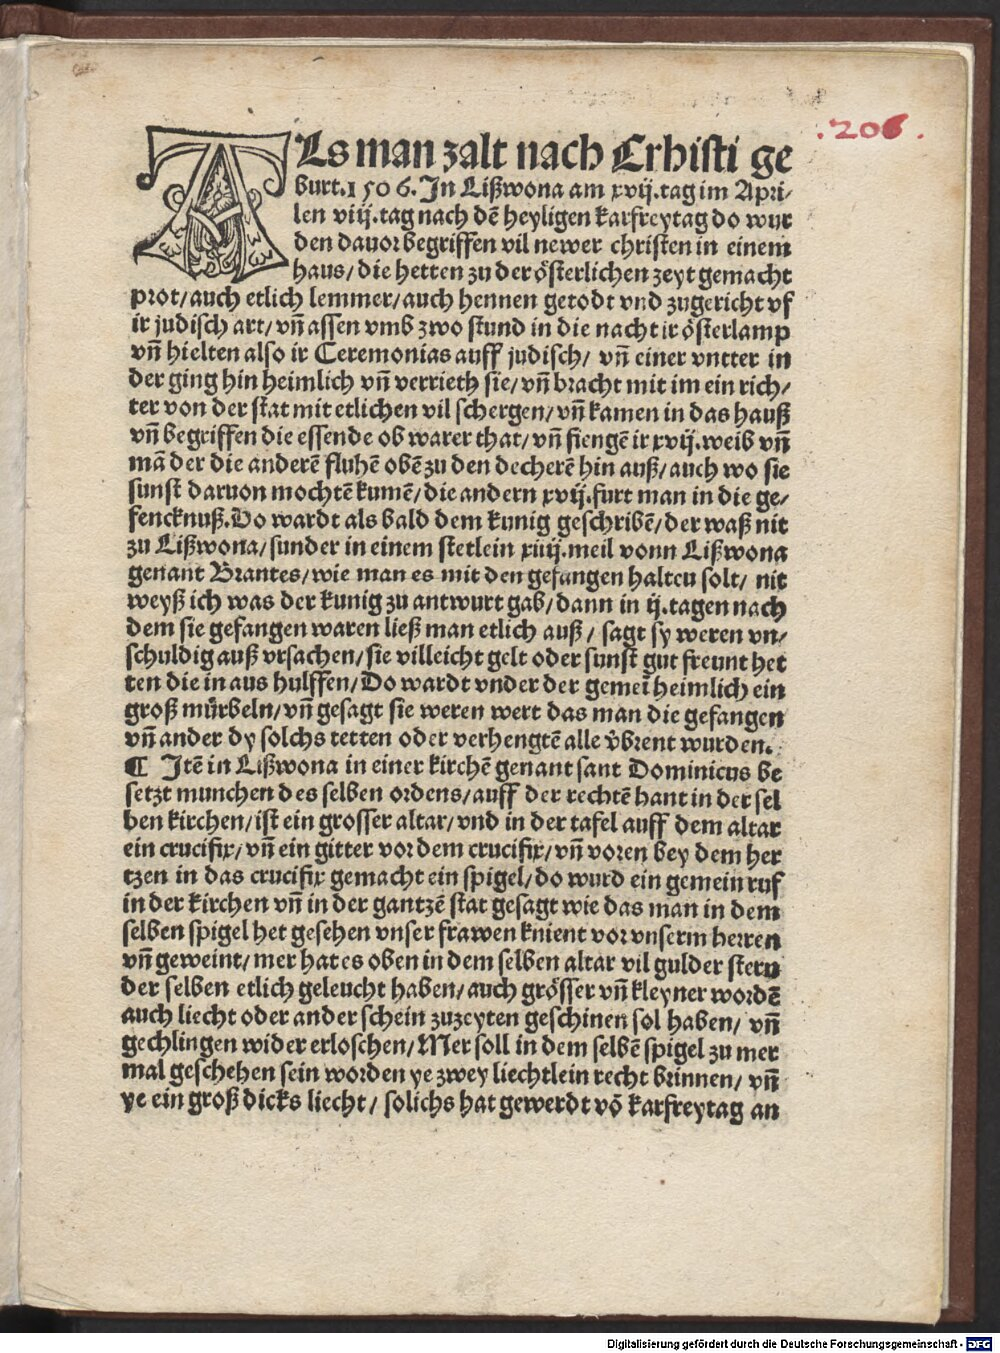 .206.
ALs man zalt nach Crhisti ge
burt.1506. In Lißwona am xvij.tag im Apri-
len viij.tag nach dē heyligen karfreytag do wur
den dauor begriffen vil newer christen in einem
haus/die hetten zu der österlichen zeyt gemacht
prot/auch etlich lemmer/auch hennen getodt vnd zugericht vf
ir judisch art/vñ assen vmb zwo stund in die nacht ir österlamp
vñ hielten also ir Ceremonias auff judisch/ vñ einer vntter in
der ging hin heimlich vñ verrieth sie/vñ bracht mit im ein rich/
ter von der stat mit etlichen vil schergen/vñ kamen in das hauß
vñ begriffen die essende ob warer that/vñ fiengē ir xvij.weib vñ
mā der die anderē fluhē obē zu den decherē hin auß/auch wo sie
sunst daruon mochtē kumē/die andern xvij.furt man in die ge/
fencknuß.Do wardt als bald dem kunig geschribē/der waß nit
zu Lißwona/sunder in einem stetlein xiiij.meil vonn Lißwona
genant Brantes/wie man es mit den gefangen halten solt/ nit
weyß ich was der kunig zu antwurt gab/dann in ij.tagen nach
dem sie gefangen waren ließ man etlich auß/ sagt sy weren vn/
schuldig auß vrsachen/sie villeicht gelt oder sunst gut freunt het
ten die in aus hulffen/Do wardt vnder der gemeī heimlich ein
groß mürbeln/vñ gesagt sie weren wert das man die gefangen
vñ ander dy solchs tetten oder verhengtē alle v̉brent wurden.
¶ Itē in Lißwona in einer kirchē genant sant Dominicus be
setzt munchen des selben ordens/auff der rechtē hant in der sel
ben kirchen/ist ein grosser altar/vnd in der tafel auff dem altar
ein crucifix/vñ ein gitter vor dem crucifix/vñ voren bey dem her
tzen in das crucifix gemacht ein spigel/do wurd ein gemein ruf
in der kirchen vñ in der gantzē stat gesagt wie das man in dem
selben spigel het gesehen vnser frawen knient vor vnserm herren
vñ geweint/mer hat es oben in dem selben altar vil gulder stern
der selben etlich geleucht haben/auch grösser vñ kleyner wordē
auch liecht oder ander schein zuzeyten geschinen sol haben/ vñ
gechlingen wider erloschen/Mer soll in dem selbē spigel zu mer
mal geschehen sein worden ye zwey liechtlein recht brinnen/ vñ
ye ein groß dicks liecht/ solichs hat gewerdt vō karfreytag an
Digitalisierung gefördert durch die Deutsche Forschungsgemeinschaft - DFG